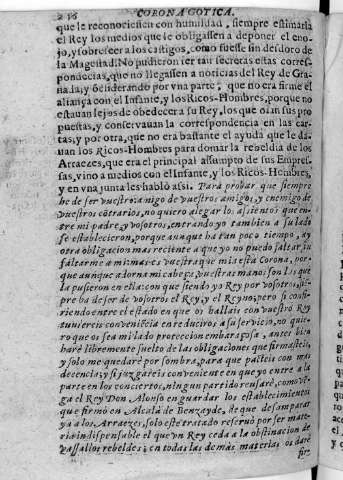 CORONA GOTICA.
que le reconociessen con humildad, siempre estimaria
el Rey los medios que le obligassen a deponer el eno-
jo, y sobreseer a los castigos, como fuesse sin desdoro de
la Magestad. No pudieron ser tan secretas estas corres-
pondecias, que no llegassen a noticias del Rey de Gra-
nada, y cõsiderando por vna parte, que no era firme el
aliança con el Infante, y los Ricos-Hombres, porque no
estauan lejos de obedecer a su Rey, los que oian sus pro
puestas, y conseruauan la correspondencia en las car-
tas, y por otra, que no era bastante el ayuda que le da-
uan los Ricos-Hombres para domar la rebeldia de los
Arraezes, que era el principal assumpto de sus Empres-
sas, vino a medios con el Infante, y los Ricos-Hombres,
y en vna junta les habló assi. Para probar que siempre
he de ser vuestro amigo de vuestros amigos, y enemigo de
vuestros cõtrarios, no quiero alegar los assientos que en-
tre mi padre, y vosotros, entrando yo tambien a su lado
se establecieron, porque aunque ha tan poco tiempo, ay
otra obligacion mas reciente a que yo no puedo faltar, sin
faltarme a mi: mas es vuestra que mia está Corona, por-
que aunque adorna mi cabeça, vuestras manos son los que
la pusieron en ella: con que siendo yo Rey por vosotros, siẽ-
pre ha de ser de vosotros el Rey, y el Reyno; pero si confi-
riendo entre el estado en que os ballais con vuestro Rey
tuuiereis conveniẽcia en reduciros a su servicio, no quie-
ro que os sea mi lado proteccion embaraçosa, antes bien
haré libremente suelto de las obligaciones que firmasteis,
y solo me quedaré por sombra, para que pacteis con mas
decencia; y si juzgareis conveniente en que yo entre a la
parte en los conciertos, ningun partido reusaré, como vẽ-
ga el Rey Don Alonso en guardar los establecimientos
que firmò en Alcalà de Benzayde, de que desampar-
ya a los Arraezes, solo este tratado reservò por ser mate-
ria indispensable el que vn Rey ceda a la obstinacion de
vassallos rebeldes; en todas las demàs materias os daré